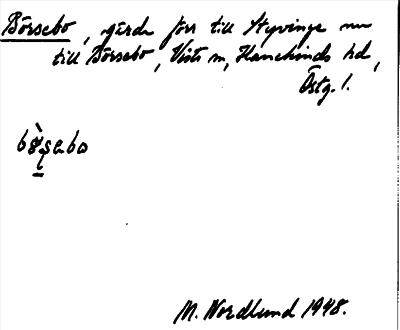 Börsebo, gärde förr till Styvinge nu
till Börsebo, Vists sn, Hanekinds hd,
Östg. l.
bö̀ʂebo
M. Nordlund 1948.